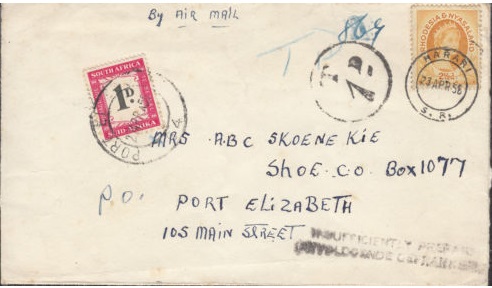 By AIR MAIL
T 869
RHODESIA & NYASALAND
HARARI
23 APR 56
S. R.
T 1D
SOUTH AFRICA
1D
SUID-AFRIKA
PORT
MRS. ABC SKOENE KIE
SHOE. CO. BOX 1077
P.O. PORT ELIZABETH
105 MAIN STREET
INSUFFICIENTLY PREPAID